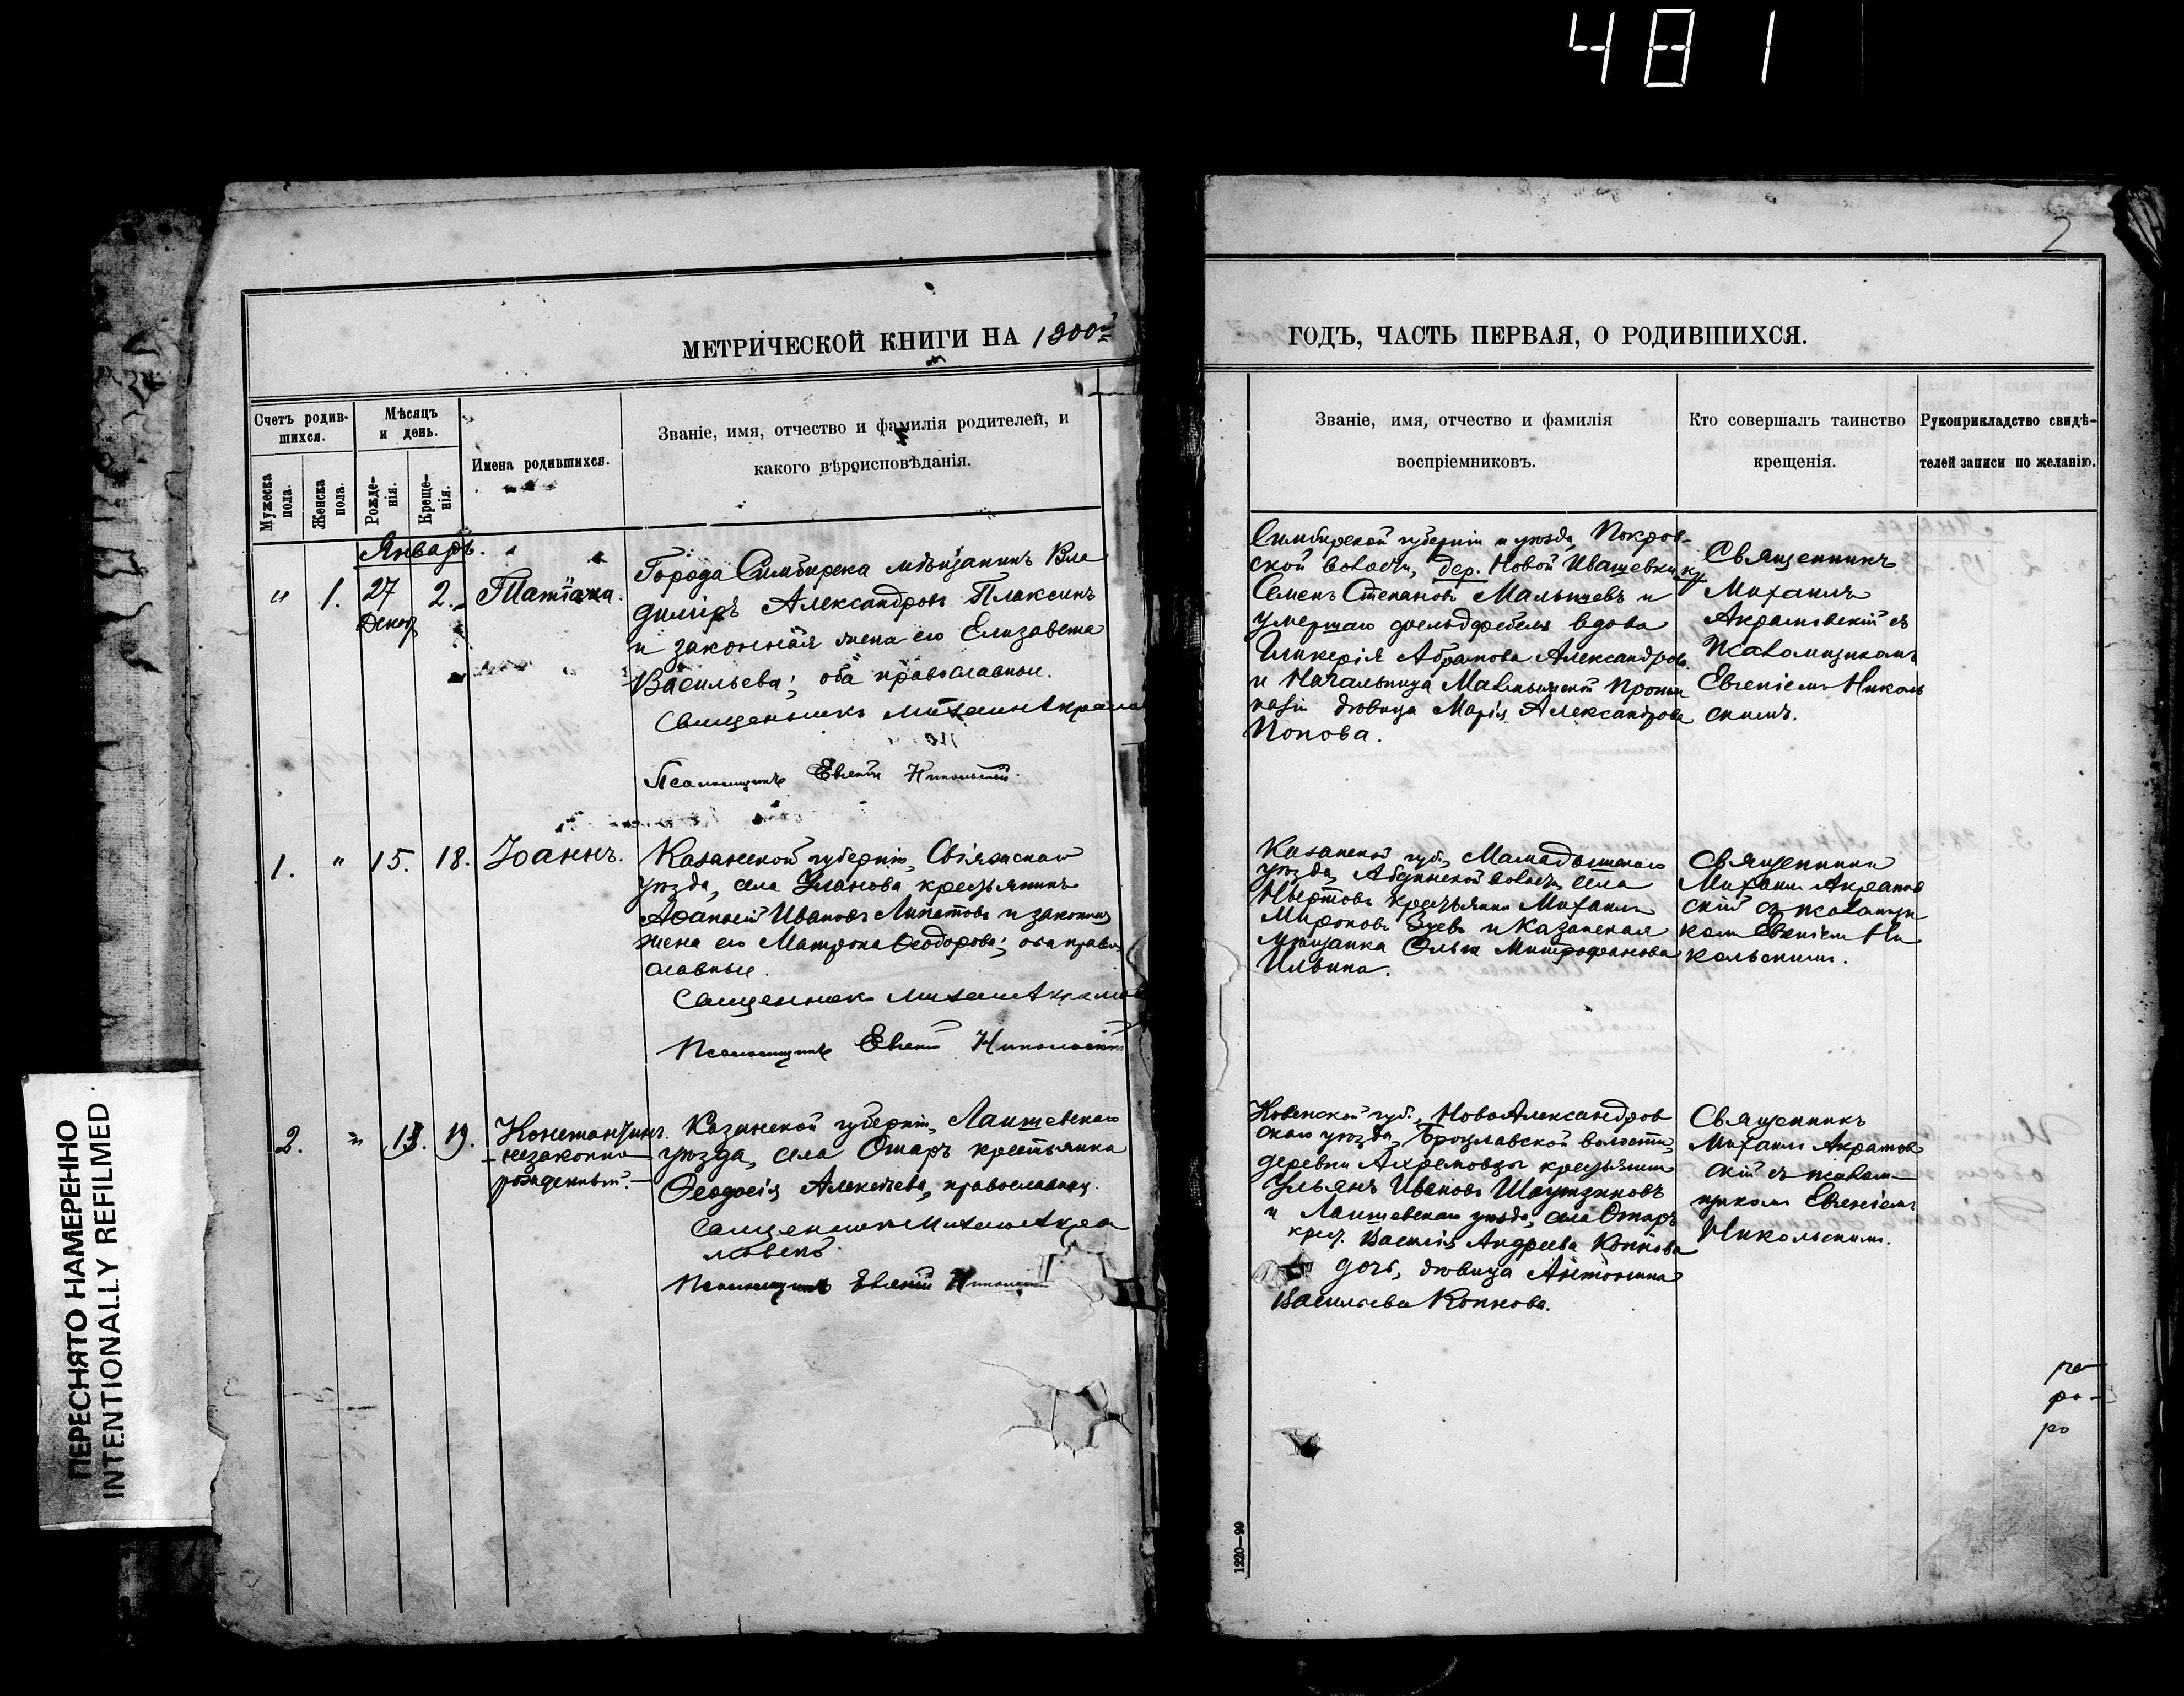 481
2
МЕТРИЧЕСКОЙ КНИГИ НА 1900й
ГОДЪ, ЧАСТЬ ПЕРВАЯ, О РОДИВШИХСЯ.
Счетъ родив-
шихся.
Мѣсяцъ
и день.
Мужеска
пола.
Женска
пола.
Рожде-
нія.
Креще-
нія.
Имена родившихся.
Званіе, имя, отчество и фамилія родителей, и
какого вѣроисповѣданія.
Званіе, имя, отчество и фамилія
воспріемниковъ.
Кто совершалъ таинство
крещенія.
Рукоприкладство свидѣ-
телей записи по желанію.
Январь.
" 1. 27 2. Татіана.
Декаб
Города Симбирска мѣщанинъ Вла
диміръ Александровъ Плаксинъ
и законная жена его Елизавета
Васильева; оба православные.
Священникъ Михаилъ
Псаломщикъ Евгеній Никольскій.
Симбирской губерніи и уѣзда, Покров-
ской волости, дер. Новой Ивашевки кр
Семенъ Степановъ Мальцевъ и
умершаго фельдфебеля вдова
Гликерія Абрамова Александрова
и Начальница Маріинской
дѣвица Марія Александрова
Попова.
Священникъ
Михаилъ
Акрамовскій съ
Псаломщикомъ
Евгеніемъ Николь
скимъ.
1. " 15. 18. Іоаннъ.
Казанской губерніи, Свіяжскаго
уѣзда, села Уланова, крестьянинъ
Аѳанасій Ивановъ Липатовъ и законная
жена его Матрона Ѳеодорова; оба право
славные.
Священник Михаил
Псаломщикъ Евгеній Никольскій
Казанской губ., Мамадышскаго
уѣзда, Абдинской волости, села
Ныртовъ крестьянинъ Михаилъ
Мироновъ Зуевъ и Казанская
мѣщанка Ольга Митрофанова
Ильина.
Священникъ
Михаилъ Акрамов
скій съ псаломщи
комъ Евгеніем Ни
кольскимъ.
2. " 13. 19. Константинъ.
незаконно
рожденный.
Казанской губерніи, Лаишевскаго
уѣзда, села Отаръ крестьянка
Ѳеодосія Алексѣева, православная.
Священникъ Михаилъ Акра
мовскій
Псаломщикъ Евгеній Никольскій
Ковенской губ., НовоАлександров
скаго уѣзда, Браславской волости,
деревни Ахремовцы крестьянинъ
Ульянъ Ивановъ
и Лаишевскаго уѣзда, села Отаръ
крест. Василія Андреева Копнова
дочь, дѣвица Антонина
Васильева Копнова.
Священникъ
Михаилъ Акрамов
скій съ псалом-
щикомъ Евгеніемъ
Никольскимъ.
ро-
ро
1220—99
ПЕРЕСНЯТО НАМЕРЕННО
INTENTIONALLY REFILMED